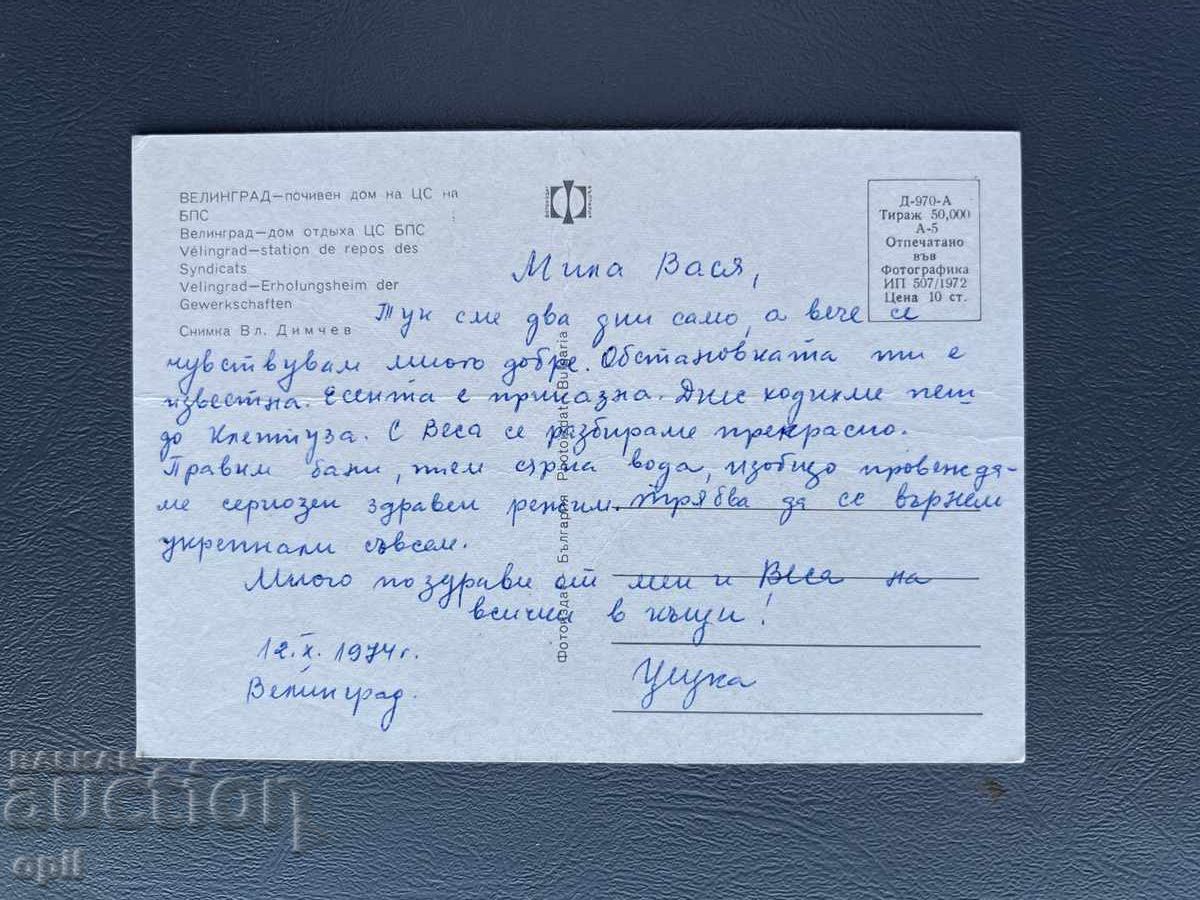 ВЕЛИНГРАД—почивен дом на ЦС на
БПС
Велинград—дом отдыха ЦС БПС
Vélingrad—station de repos des
Syndicats
Velingrad—Erholungsheim der
Gewerkschaften
Снимка Вл. Димчев
Фотоиздат — България Photoizdat Bulgaria
Д-970-А
Тираж 50,000
А-5
Отпечатано
във
Фотографика
ИП 507/1972
Цена 10 ст.
Мила Вася,
Тук сме два дни само, а вече се
чувствувам много добре. Обстановката ти е
известна. Есента е приказна. Днес ходихме пеш
до Клептуза. С Веса се разбираме прекрасно.
Правим бани, пием сярна вода, изобщо провеждa-
ме сериозен здравен режим. Трябва да се върнем
укрепнали съвсем.
Много поздрави от мен и Веса на
всички в къщи!
12.X.1974г.
Велинград.
Цецка
БАЛКАН
auction
opil